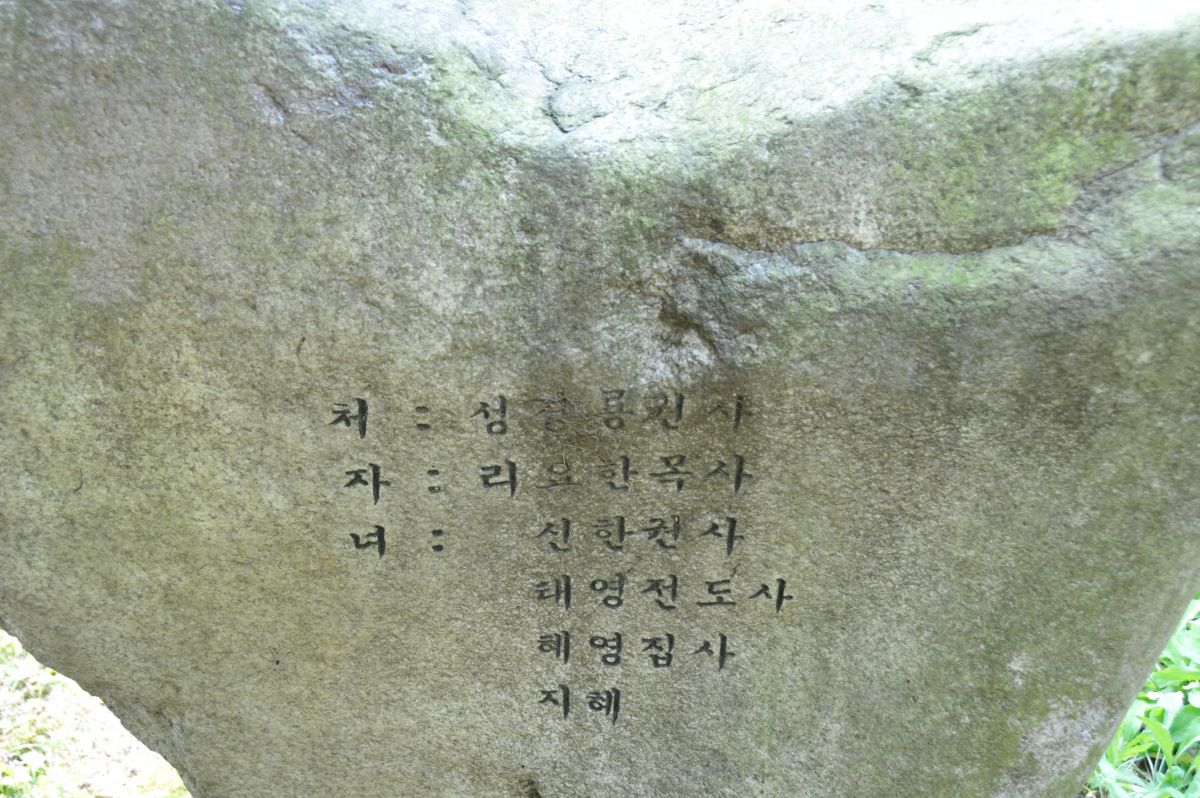 처 : 성경룡권사
자 : 리요한목사
녀 : 신한권사
태영전도사
혜영집사
지혜